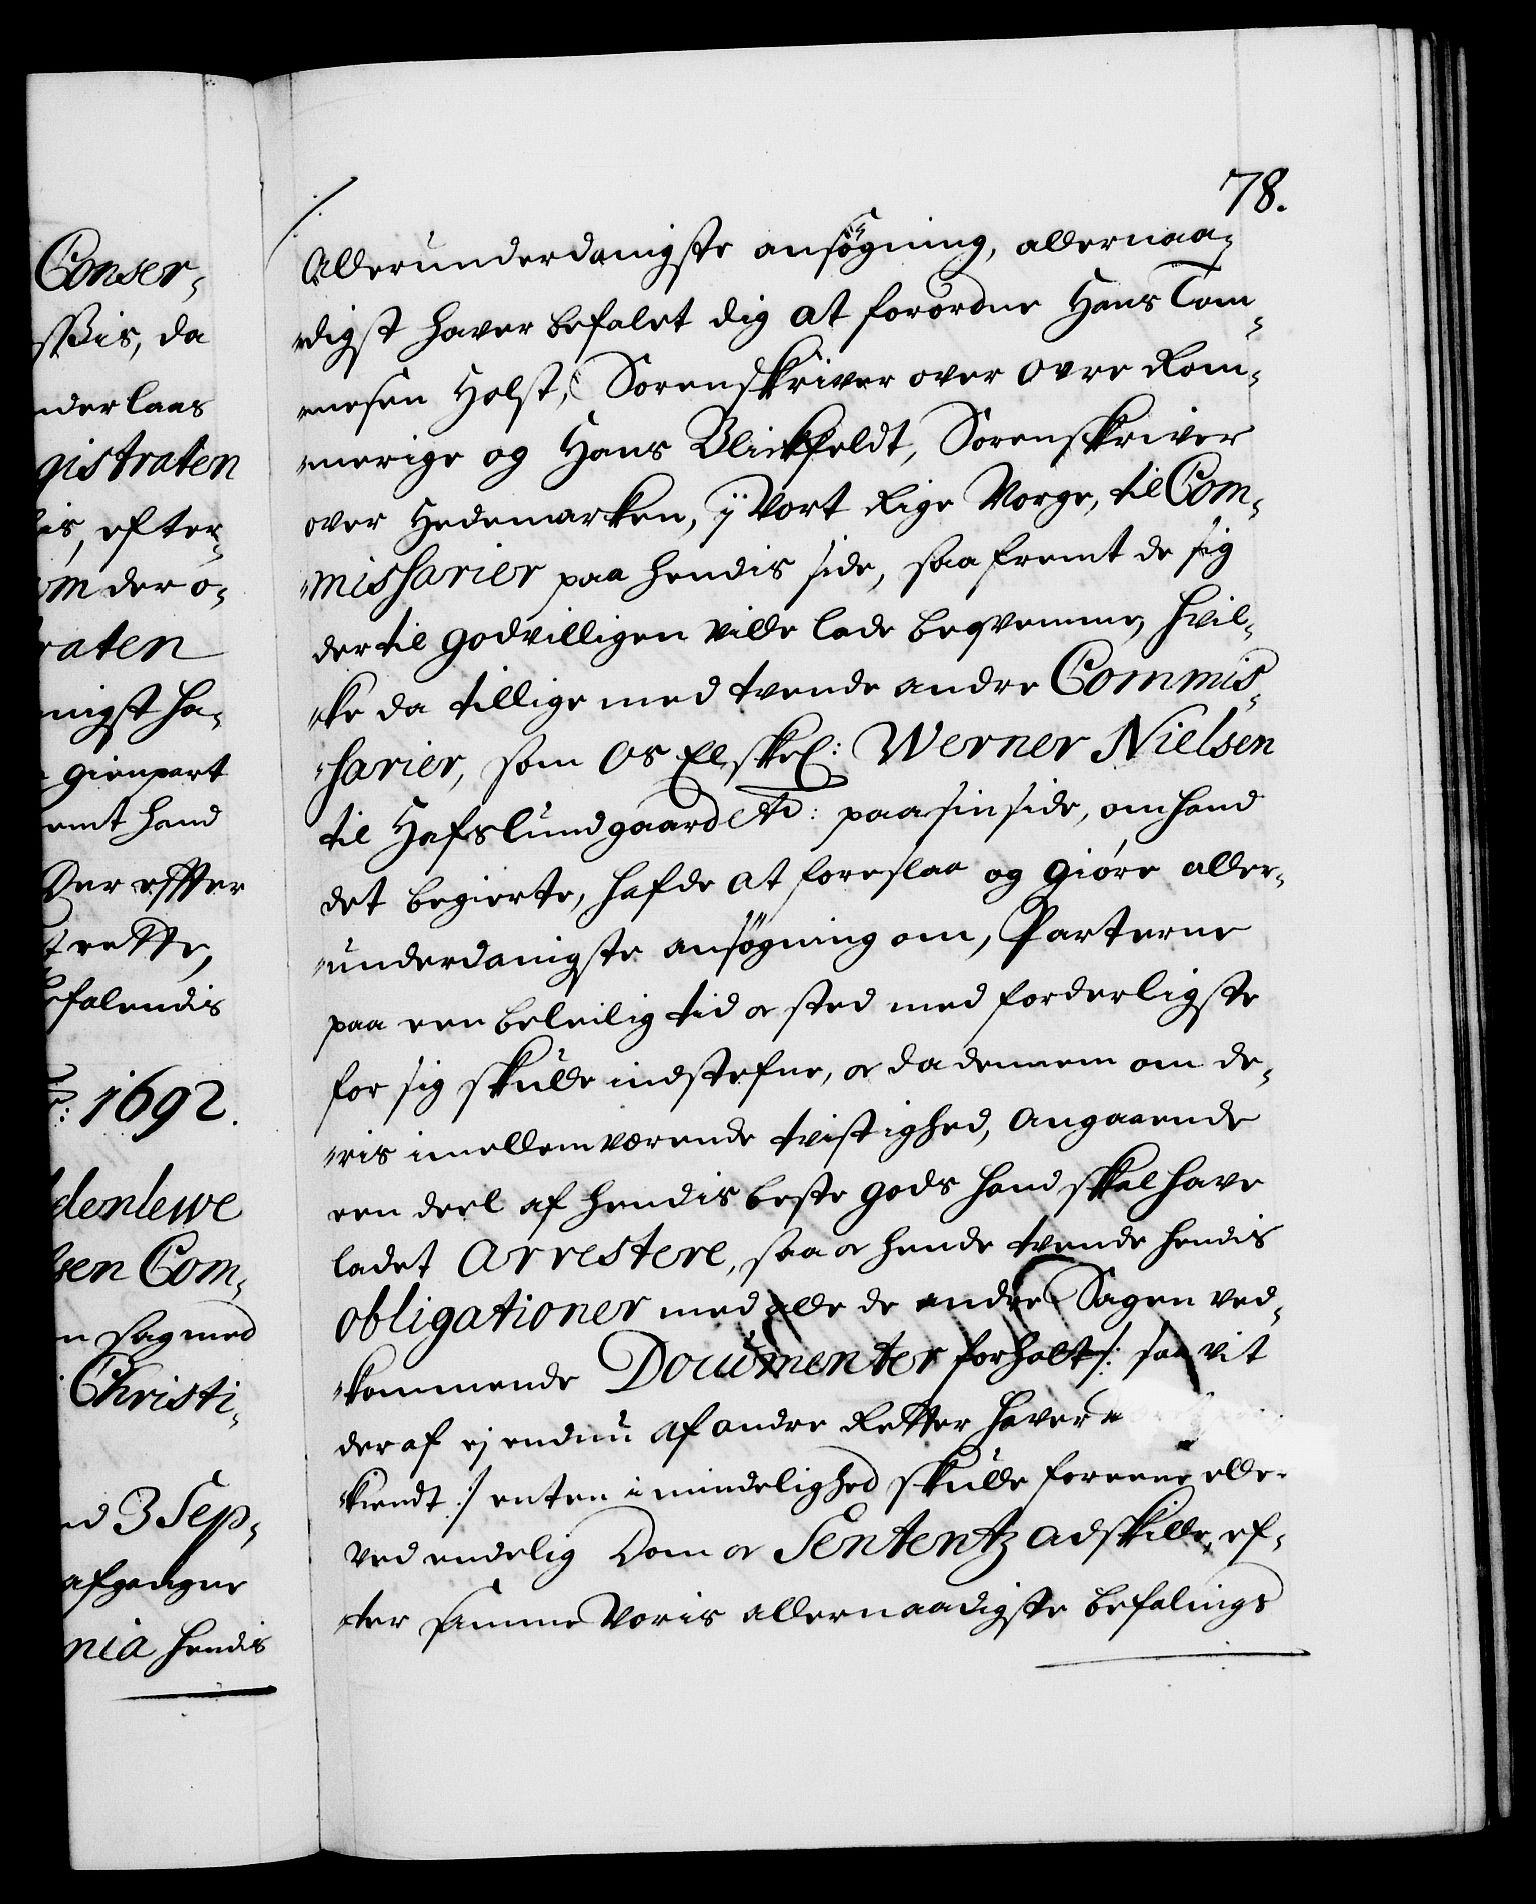 Conser-
ssis, da
nderlaas
gistraten
lis, efter-
om der o-
raten
nigst ha-
gienpart
emt hand
Der effter
t rette,
befalendis
1692.
ldenlewe
sen Com-
n sag med
Christi-
nd 3 Sep-
afgangne
nia hendis
78.
Allerunderdanigste ansøgning, allernaa-
digst haver befalet dig at forordne Hans Tom-
mesen Holst, Sorenskriver over Ovre Rom-
merige og Hans Blickfeldt, Sorenskriver
over Hedemarken, ÿ Vort Rige Norge, til Com-
missarier paa hendis side, saafremt de sig
dertil godvilligen ville lade beqvemme, hvil-
ke da tillige med tvende andre Commis-
sarier, som Os Elskel: Werner Nielsen
til Hafslundgaard etc: paa sin side, om hand
det begierte, hafde at foreslaa og giøre aller-
underdanigste ansøgning om, Parterne
paa een beleilig tid oc sted med forderligste
for sig skulle indstefne, oc da dennem om de-
ris imellemværende tvistighed, Angaaende
een deel af hendis beste gods hand skal have
ladet Arrestere, saa oc hende tvende hendis
obligationer med alle de andre Sagen ved-
kommende Documenter forholt /: saa vit
deraf ej endnu af andre Retter haver
kiendt :/ enten i mindelighed skulle foreene eller
ved endelig Dom oc Sententz adskille, ef-
ter samme Voris allernaadigste befalings